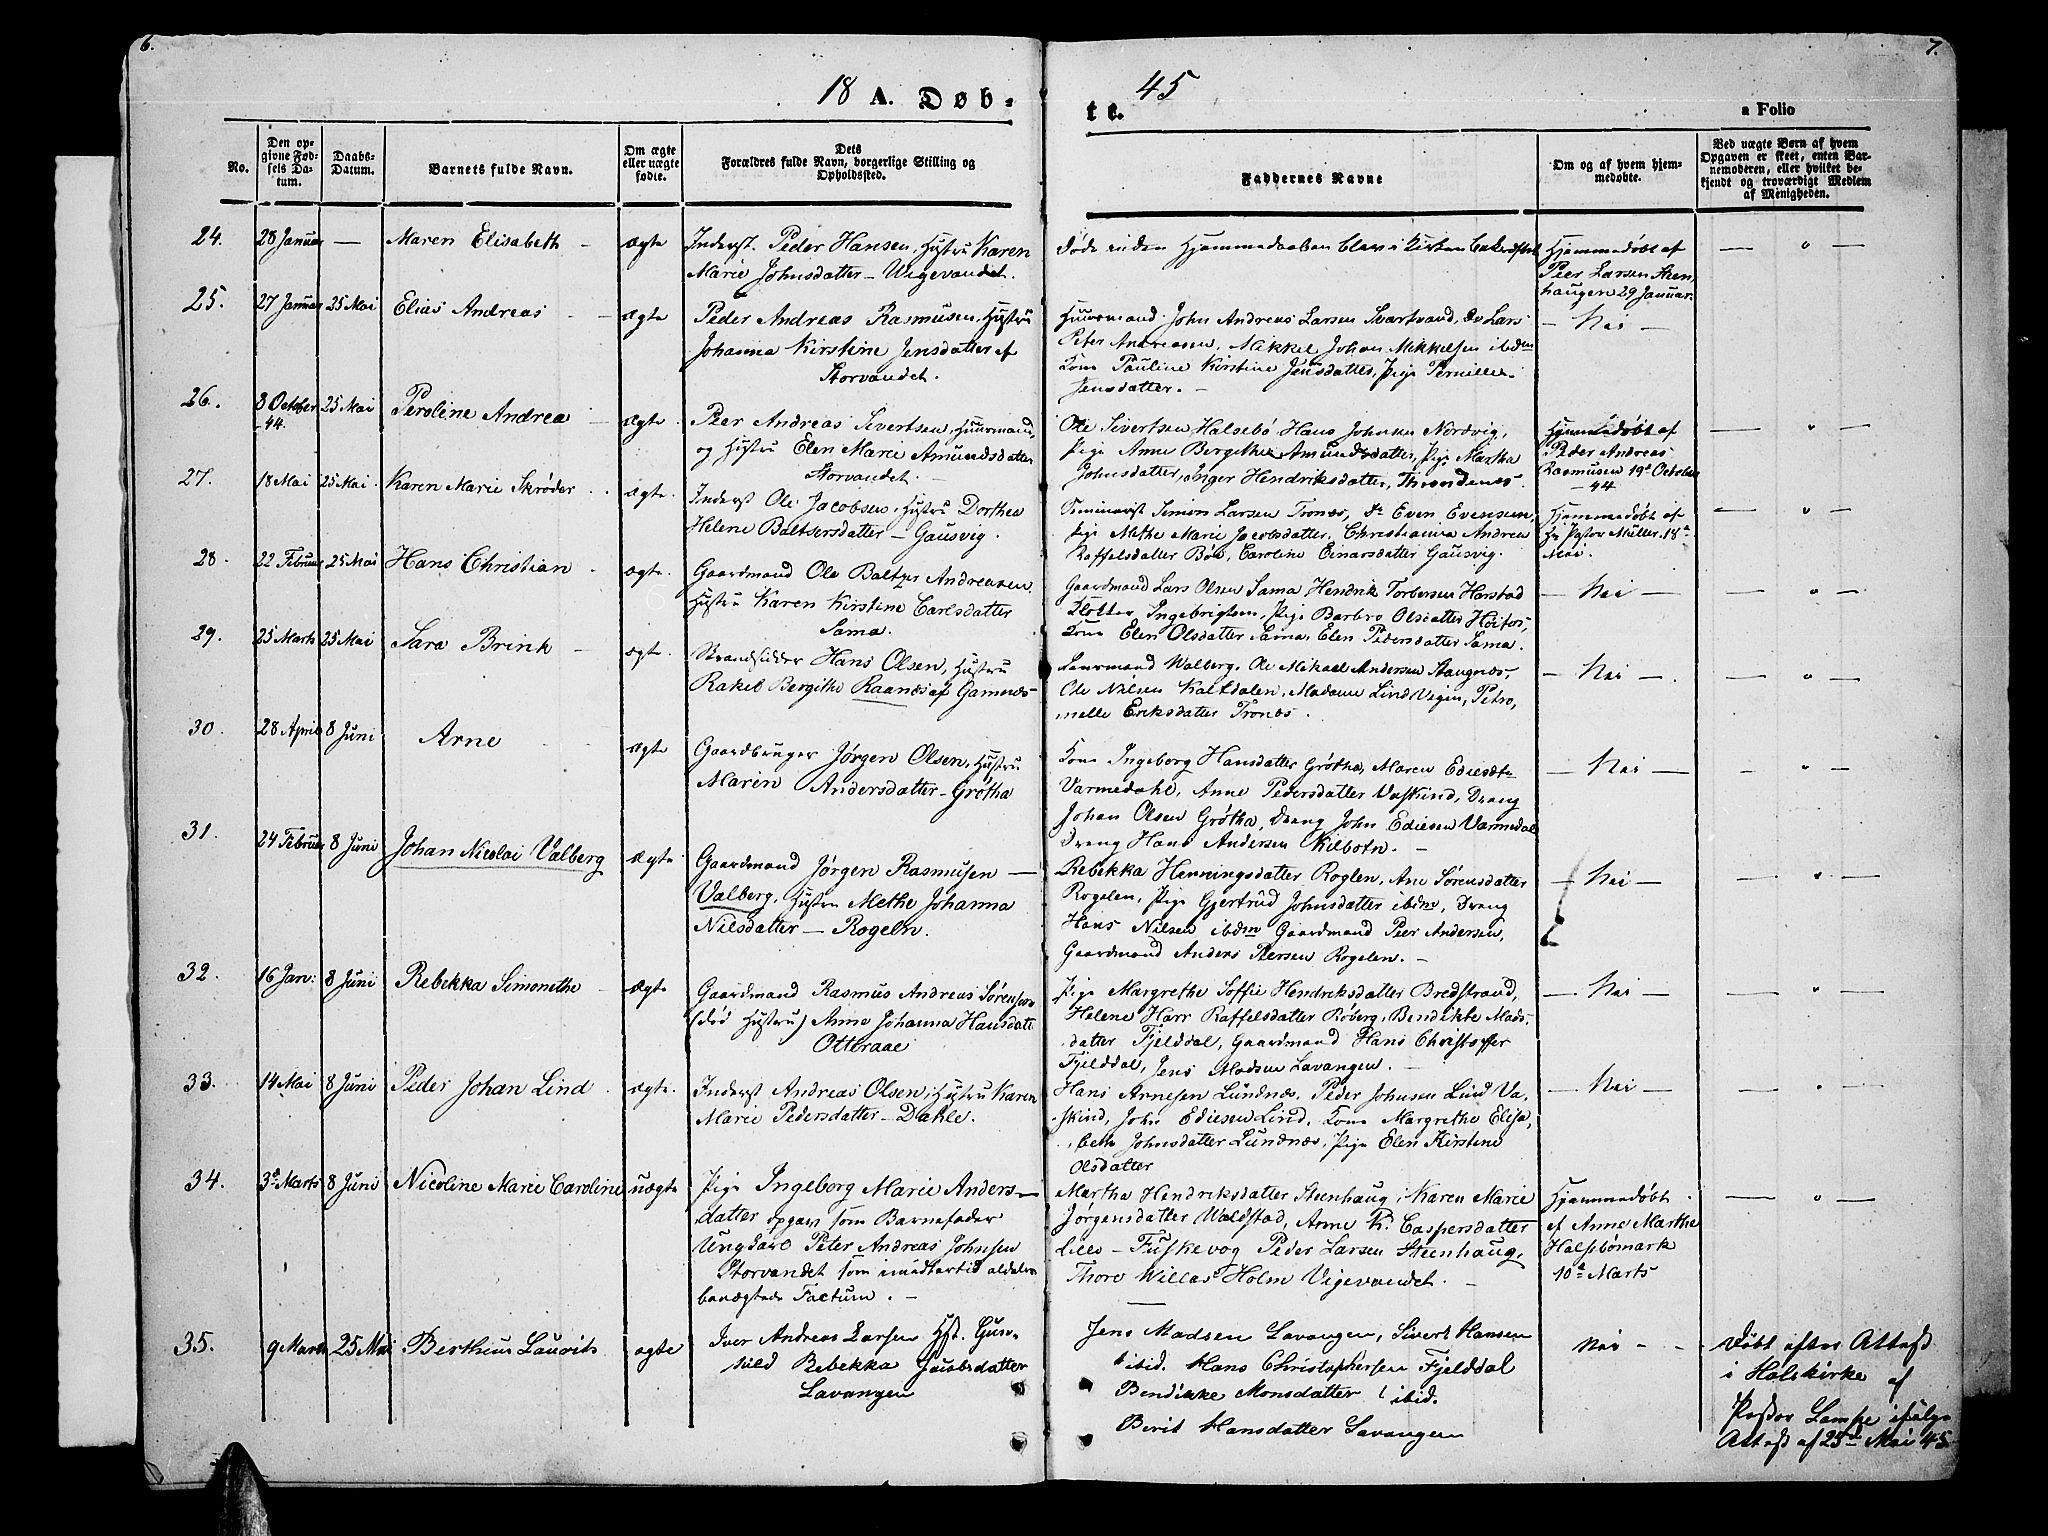 6.
7.
18 A. Døb-
tt. 45
a Folio
No.
Den opgivne Fødsels Datum.
Daabs-Datum.
Barnets fulde Navn.
Om ægte eller uægte fødte.
Dets Forældres fulde Navn, borgerlige Stilling og Opholdssted.
Faddernes Navne
Om og af hvem hjemmedøbte.
Ved uægte Børn af hvem Opgaven er skeet, enten Barnemoderen, eller hvilket bekjendt og troværdigt Medlem af Menigheden.
24. 28 Januar — Maren Elisabeth - ægte
Inderst Peder Hansen, Hustru Karen
Marie Johnsdatter - Wigevandet.
Hjemmedøbt af
Peer Larsen Steen
haugen 29 Januar.
— " —
25. 27 Januar 25 Mai Elias Andreas - ægte
Peder Andreas Rasmusen, Hustru
Johanna Kirstine Jensdatter af
Storvandet.
Huusmand John Andreas Larsen Svartvand, Do Lars
Peter Andreasen, Mikkel Johan Mikkelsen ibdm
Kone Pauline Kirstine Jensdatter, Pige Pernille
Jensdatter. -
— Nei —
26. 8 October 25 Mai Peroline Andrea - ægte
-44.
Peer Andreas Sivertsen, Huusmand,
og Hustru Elen Marie Amundsdatter
Storvandet. -
Ole Sivertsen Halsebø Hans Johnsen Nordvig,
Pige Anne Bergithe Amundsdatter, Pige Martha
Johnsdatter, Inger Hendriksdatter, Throndenæs.
Hjemmedøbt af
Peder Andreas
Rasmusen 19de October
-44
— " —
27. 18 Mai 25 Mai Karen Marie Skrøder ægte.
Inderst Ole Jacobsen, Hustru Dorthea
Helene Baltsersdatter - Gausvig.
Seminarist Simon Larsen Tronæs, do Even Evensen,
Pige Methe Marie Jacobsdatter, Christianna Andrea
Raffelsdatter Bøe, Caroline Einarsdatter Gausvig.
Hjemmedøbt af
Hr Pastor Müller, 18de
Mai.
— " —
28. 22 Februar 25 Mai Hans Christian - ægte.
Gaardmand Ole Baltzer Andreasen
Hustru Karen Kirstine Carlsdatter
Sama.
Gaardmand Lars Olsen Sama Hendrik Torbersen Harstad
Ingebrigtsen, Pige Barbro Olsdatter
Kone Elen Olsdatter Sama, Elen Pedersdatter Sama.
— Nei —
— " —
29. 25 Marts 25 Mai Sara Brink - ægte.
Strandsidder Hans Olsen, Hustru
Rakel Bergithe Raanæs af Gamnæs
Lensmand Walberg, Ole Mikael Andersen Stangnæs,
Ole Nilsen Kaltdalen, Madame Lind Vigen, Petro,
nelle Eriksdatter Tronæs.
— Nei —
— " —
30. 28 April 8 Juni Arne - ægte
Gaardbruger Jørgen Olsen, Hustru
Maren Andersdatter - Grøtha
Kone Ingeborg Hansdatter Grøtha, Maren Ediesdtr
Varmedahl, Anne Pedersdatter Vaskind, Dreng
Johan Olsen Grøtha, Dreng John Ediesen Varmedal
Dreng Hans Andersen Kilbotn. -
— Nei —
— " —
31. 24 Februar 8 Juni Johan Nicolai Valberg ægte
Gaardmand Jørgen Rasmusen —
Valberg, Hustru Methe Johanna
Nilsdatter — Rogeln.
Rebekka Henningsdatter Roglen, Ane Sørensdatter
Rogelen, Pige Gjertrud Johnsdatter ibdm, Dreng
Hans Nilsen ibdm Gaardmand Peer Andersen,
Gaardmand Anders Persen Rogelen. -
— Nei —
— " —
32. 16 Jan: 8 Juni Rebekka Simonethe - ægte
Gaardmand Rasmus Andreas Sørensen
(død Hustru) Anne Johanna Hansdatt
Otteraae
Pige Margrethe Soffie Hendriksdatter Bredstrand,
Helene Harr Raffelsdatter Røberg, Bendikte Mads,
datter Fjelddal, Gaardmand Hans Christoffer
Fjelddal, Jens Madsen Lavangen. -
— Nei —
— " —
33. 14 Mai 8 Juni Peder Johan Lind ægte.
Inderst Andreas Olsen, Hustru Karen
Marie Pedersdatter - Dahle.
Hans Arnesen Lundnæs, Peder Johnsen Lind Va,
skind, John Ediesen Lind, Kone Margrethe Elisa,
beth Johnsdatter Lundnæs, Pige Elen Kirstine
Olsdatter
— Nei —
— " —
34. 3de Marts 8 Juni Nicoline Marie Caroline uægte
Pige Ingeborg Marie Anders-
datter opgav som Barnefader
Ungkarl Peter Andreas Johnsen
Storvandet som imidlertid aldeles
benægtede Factum. -
Martha Hendriksdatter Steenhaug, Karen Marie
Jørgensdatter Waldstad, Anne K. Caspersdatter
Lille - Fuskevog Peder Larsen Steenhaug,
Thore Willas Holm Vigevandet. -
Hjemmedøbt
af Anne Marthe
Halsebømark
10de Marts
— " —
35. 9 Marts 25 Mai Bertheus Laurits ægte
Iver Andreas Larsen Hst. Gun-
hild Rebekka Jacobsdatter
Lavangen
Jens Madsen Lavangen, Sivert Hansen
ibid. Hans Christophersen Fjelddal
Bendikke Monsdatter ibid.
Berit Hansdatter Lavangen
Nei - -
Døbt efter Attest
i Hols kirke af
Pastor Lampe ifølge
Attest af 25de Mai 45